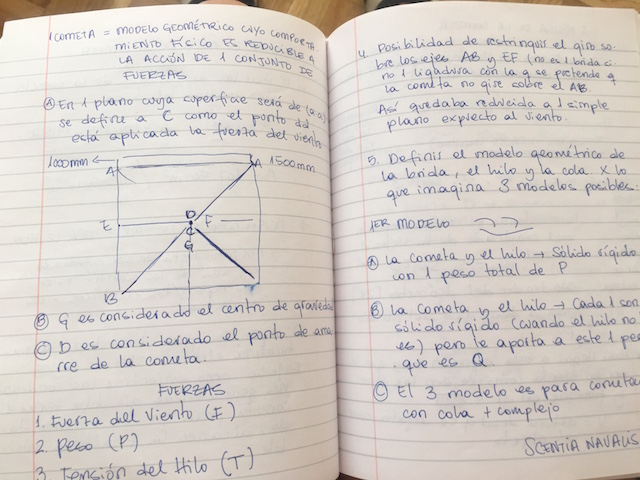 1 COMETA = MODELO GEOMÉTRICO CUYO COMPORTA
MIENTO FÍSICO ES REDUCIBLE A
LA ACCIÓN DE 1 CONJUNTO DE
FUERZAS
A En 1 plano cuya superficie será de (a.a)
se define a C como el ponto dd
está aplicada la fuerza del viento
1000mm
A
A 1500mm
E
D
F
C
G
B
B G es considerado el centro de gravedad
C D es considerado el ponto de ama
rre de la cometa.
FUERZAS
1. Fuerza del Viento (F)
2. Peso (P)
3. Tensión del Hilo (T)
4. Posibilidad de restringir el giro so
bre los ejes AB y EF (no es 1 brida si
no 1 ligadura con la q se pretende q
la cometa no gire sobre el AB.
Así quedaba reducida a 1 simple
plano expuesto al viento.
5. Definir el modelo geométrico de
la brida, el hilo y la cola x lo
que imagina 3 modelos posibles.
1ER MODELO
A La cometa y el hilo → Sólido rígido
con 1 peso total de P
B La cometa y el hilo → Cada 1 son
sólido rígido (cuando el hilo no
es) pero le aporta a este 1 peso
que es Q
C El 3 modelo es para cometas
con cola + complejo
SCENTIA NAVALIS